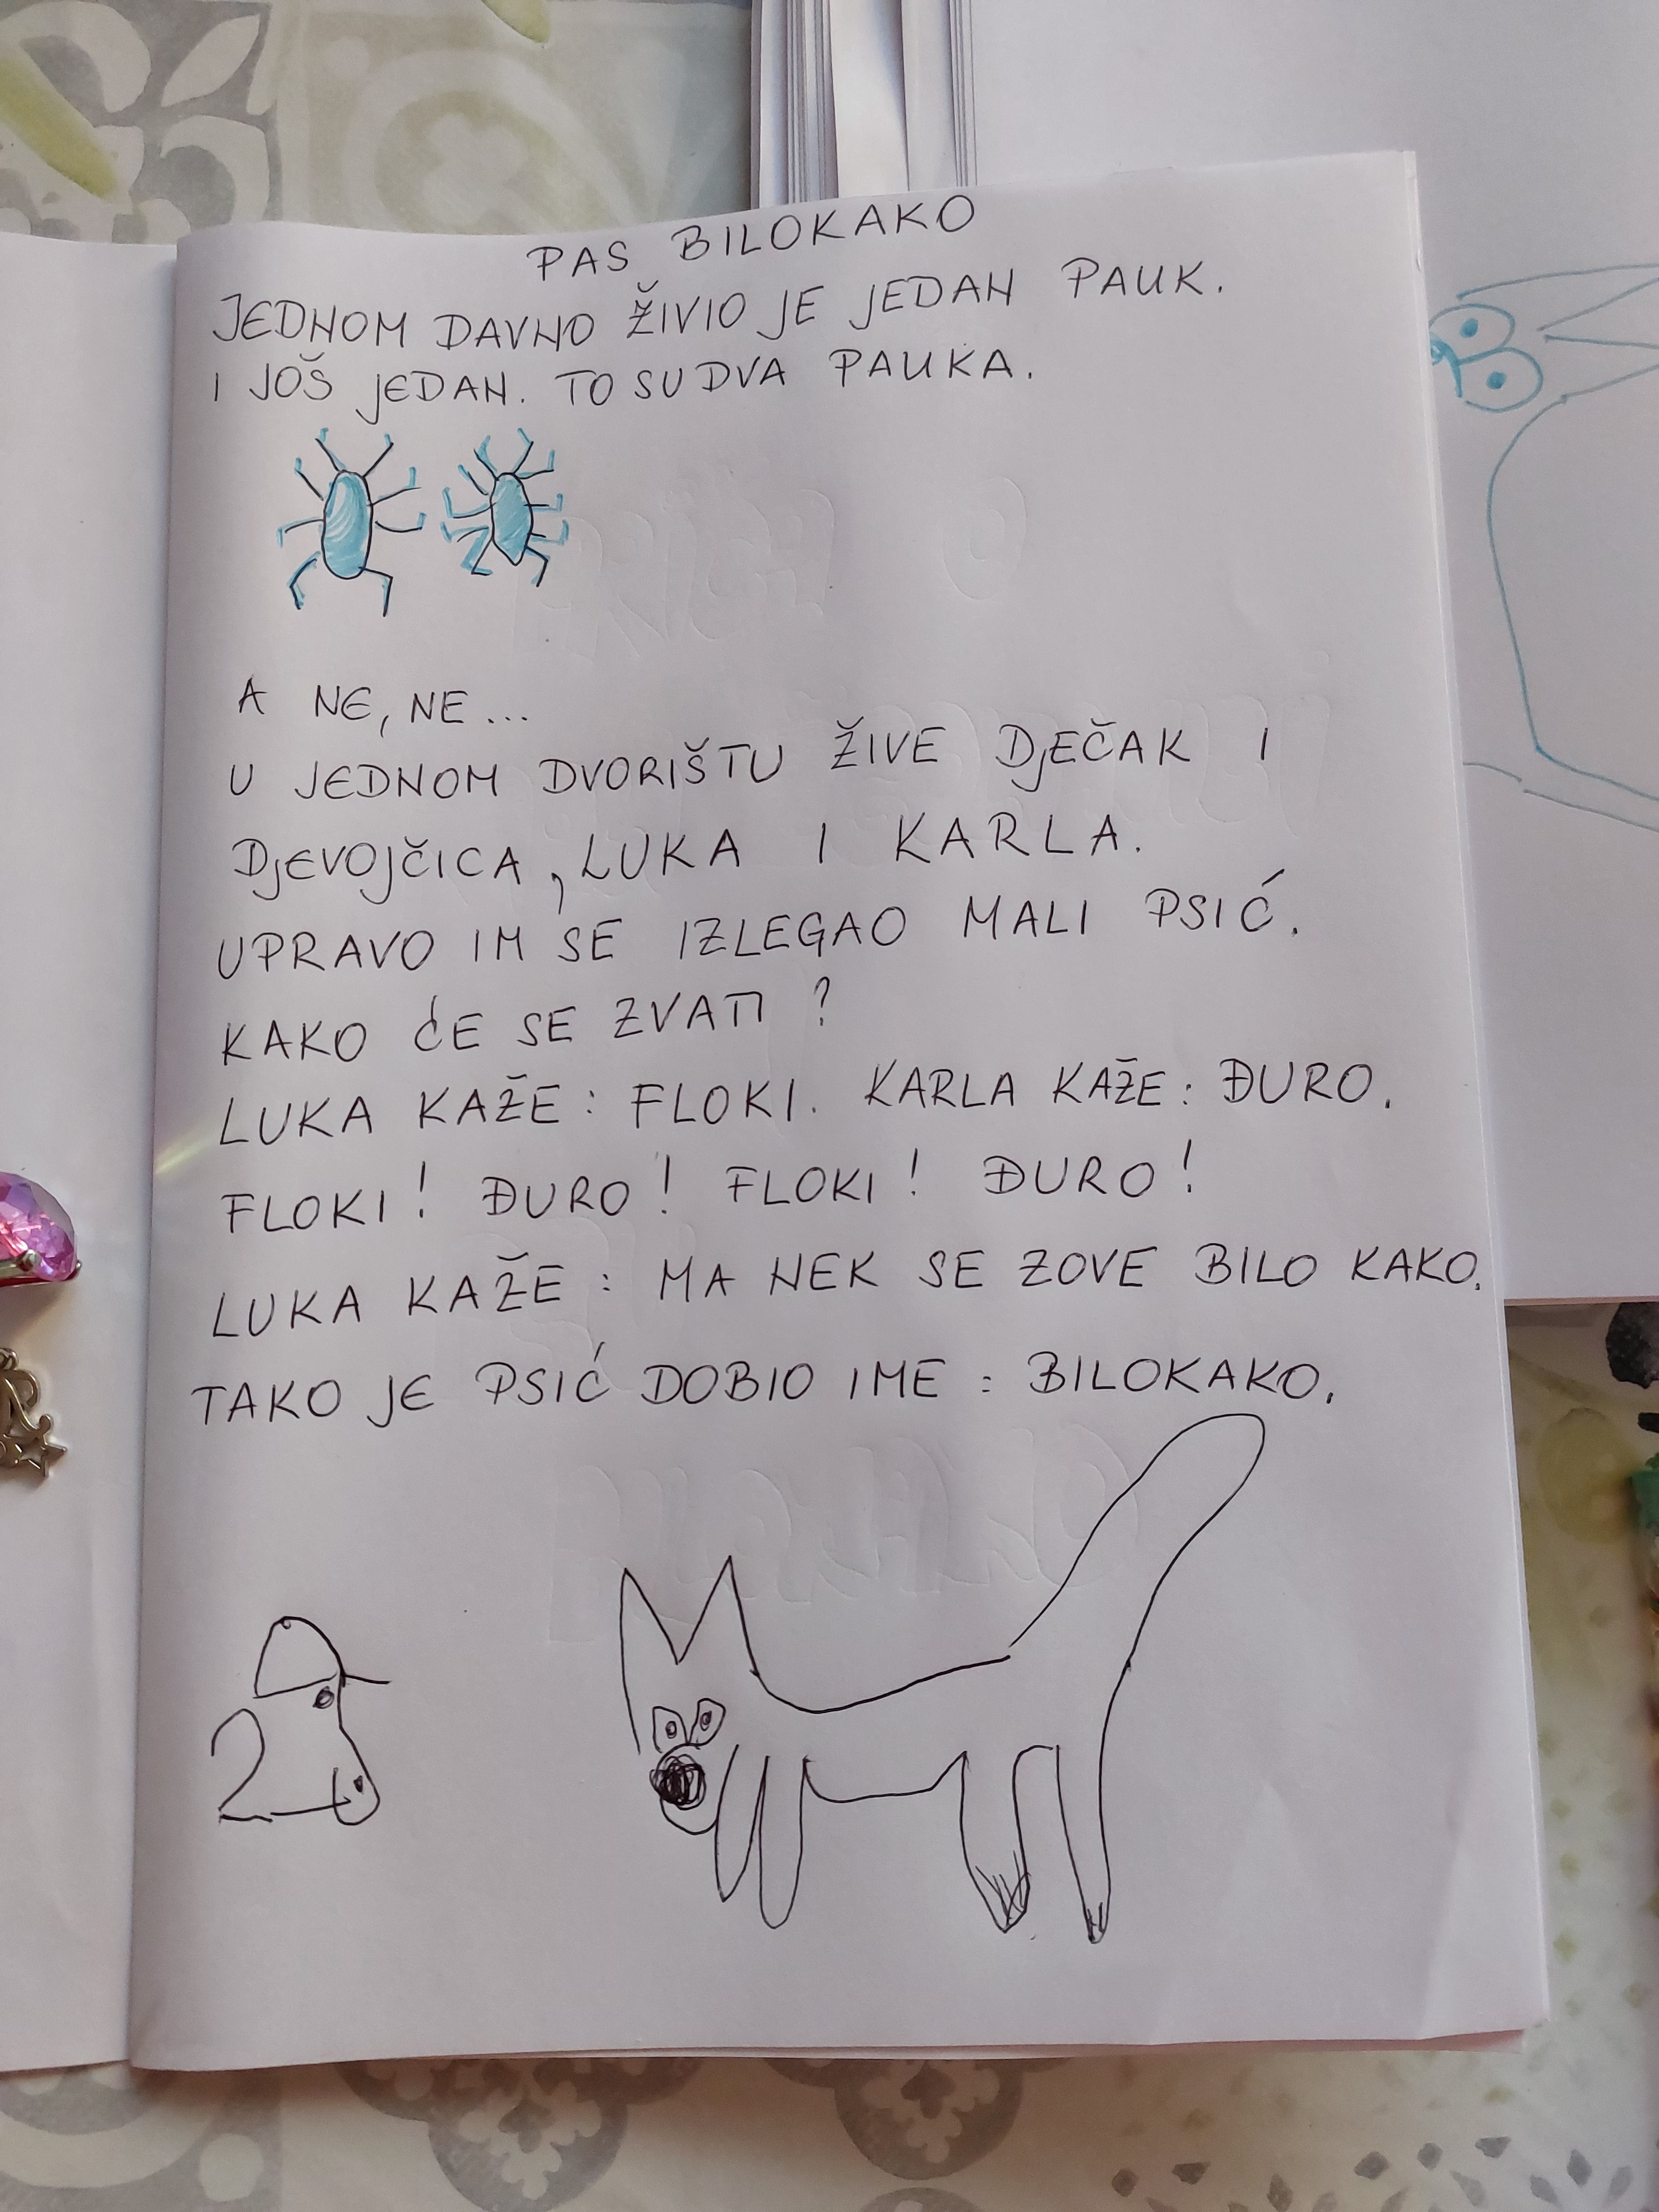 PAS BILOKAKO
JEDNOM DAVNO ŽIVIO JE JEDAN PAUK.
I JOŠ JEDAN. TO SU DVA PAUKA.
A NE, NE...
U JEDNOM DVORIŠTU ŽIVE DJEČAK I
DJEVOJČICA, LUKA I KARLA.
UPRAVO IM SE IZLEGAO MALI PSIĆ.
KAKO ĆE SE ZVATI?
LUKA KAŽE: FLOKI. KARLA KAŽE: ĐURO.
FLOKI! ĐURO! FLOKI! ĐURO!
LUKA KAŽE: MA NEK SE ZOVE BILO KAKO.
TAKO JE PSIĆ DOBIO IME: BILOKAKO.